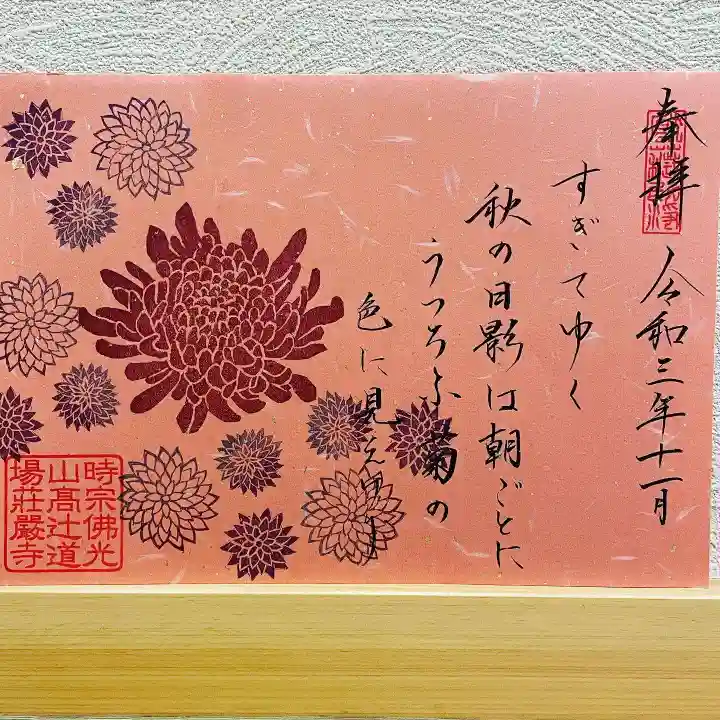 奉拝
令和三年十一月
すぎてゆく
秋の日影は朝ごとに
うつろふ菊の
色に見えけり
時宗佛光
山髙辻道
場莊嚴寺